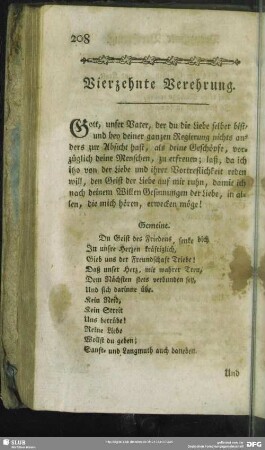 208
Vierzehnte Verehrung.
Gott, unser Vater, der du die Liebe selber bist,
und bey deiner ganzen Regierung nichts an-
ders zur Absicht hast, als deine Geschöpfe, vor-
züglich deine Menschen, zu erfreuen; laß, da ich
itzo von der Liebe und ihrer Vortreflichkeit reden
will, den Geist der Liebe auf mir ruhn, damit ich
nach deinem Willen Gesinnungen der Liebe, in al-
len, die mich hören, erwecken möge!
Gemeine.
Du Geist des Friedens, senke dich
In unsre Herzen kräftiglich,
Gieb uns der Freundschaft Triebe!
Daß unser Herz, mit wahrer Treu,
Dem Nächsten stets verbunden sey,
Und sich darinne übe.
Kein Neid,
Kein Streit
Uns betrübe!
Reine Liebe
Wollst du geben!
Sanft- und Langmuth auch daneben.
Und
SLUB
DFG